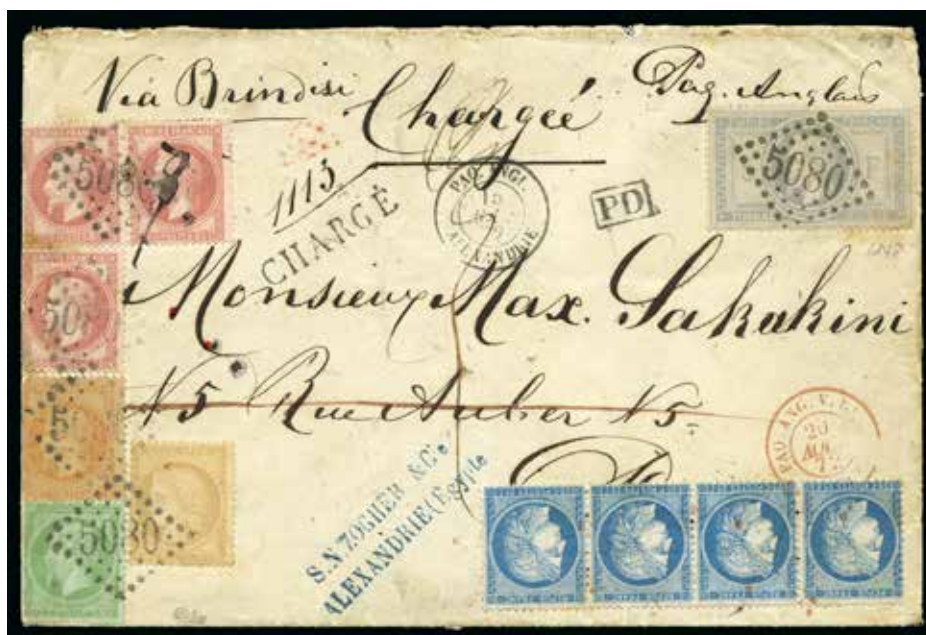 Via Brindisi
Chargée
Paq. Anglais
1113
CHARGÉ
PAQ. ANGL.
ALEXANDRIE
PD
5080
5080
5080
Monsieur Max. Sakakini
N5 Rue Auber N5
PAQ. ANG. V.
20
S.N ZOGHEB & Cie
ALEXANDRIE (Egypte